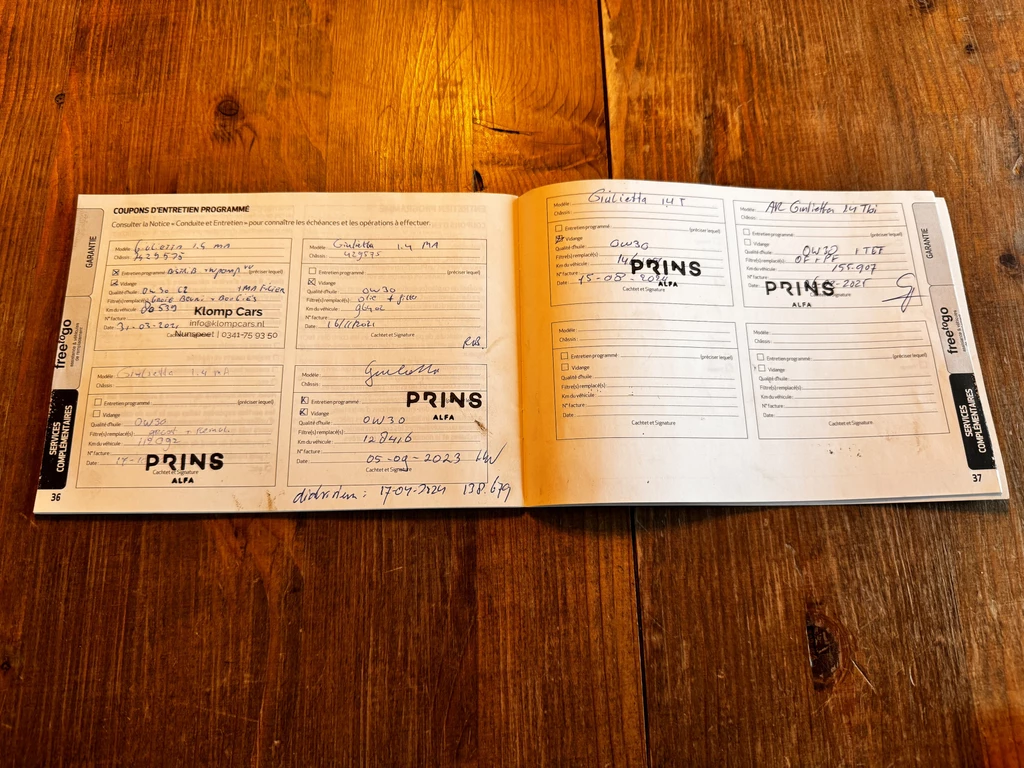 COUPONS D'ENTRETIEN PROGRAMMÉ
Consulter la Notice « Conduite et Entretien » pour connaître les échéances et les opérations à effectuer.
GARANTIE
freetogo
SERVICES COMPLÉMENTAIRES
36
Modèle: 1.4 MA
Châssis: 7429575
Entretien programmé (préciser lequel)
Vidange
Qualité d'huile: 0W30
Filtre(s) remplacé(s)
Km du véhicule: 80539
Klomp Cars
info@klompcars.nl
Nunspeet | 0341-75 93 50
N° facture:
Date: 31-03-202
Cachtet et Signature
Modèle: Giulietta 1.4 MA
Châssis: 429575
Entretien programmé: (préciser lequel)
Vidange
Qualité d'huile: 0W30
Filtre(s) remplacé(s) olie + filter
Km du véhicule:
N° facture:
Date: 16/11/2021
Cachtet et Signature
Modèle: Giulietta 1.4 MA
Châssis:
Entretien programmé: (préciser lequel)
Vidange
Qualité d'huile: 0W30
Filtre(s) remplacé(s)
Km du véhicule: 119092
N° facture:
Date:
PRINS
ALFA
Cachtet et Signature
Modèle: Giulietta
Châssis:
Entretien programmé:
Vidange
PRINS
ALFA
Qualité d'huile: 0W30
Filtre(s) remplacé(s)
Km du véhicule: 128416
N° facture:
Date: 05-09-2023
Cachtet et Signature
17-04-2024 138.679
Modèle: Giulietta 1.4 T
Châssis:
Entretien programmé: (préciser lequel)
Vidange
Qualité d'huile: 0W30
Filtre(s) remplacé(s)
Km du véhicule:
N° facture:
PRINS
ALFA
Date: 15-08-
Cachtet et Signature
Modèle: AR Giulietta 1.4 Tbi
Châssis:
Entretien programmé: (préciser lequel)
Vidange
Qualité d'huile: 0W30
Filtre(s) remplacé(s)
Km du véhicule: 155.907
N° facture:
PRINS
ALFA
Date: 2025
Cachtet et Signature
Modèle:
Châssis:
Entretien programmé (préciser lequel)
Vidange
Qualité d'huile:
Filtre(s) remplacé(s)
Km du véhicule:
N° facture:
Date:
Cachtet et Signature
Modèle:
Châssis:
Entretien programmé: (préciser lequel)
Vidange
Qualité d'huile:
Filtre(s) remplacé(s)
Km du véhicule:
N° facture:
Date:
Cachtet et Signature
GARANTIE
freetogo
SERVICES COMPLÉMENTAIRES
37